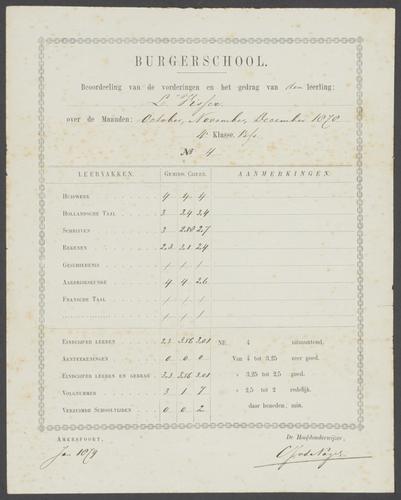 BURGERSCHOOL.
Beoordeeling van de vorderingen en het gedrag van den leerling:
over de Maanden: October, November, December 1870
4e Klasse.
No 4
LEERVAKKEN. GEMIDD. CIJFER. AANMERKINGEN.
HUISWERK 4 4 4
HOLLANDSCHE TAAL 3 3.4 3.4
SCHRIJVEN 3 2.88 2.7
REKENEN 2.3 3.1 2.4
GESCHIEDENIS / / /
AARDRIJKSKUNDE 4 4 2.6
FRANSCHE TAAL / / /
/ / /
EINDCIJFER LEEREN 3.3 3.56 3.01 NB. 4 uitmuntend.
AANTEEKENINGEN 0 0 0 Van 4 tot 3,25 zeer goed.
EINDCIJFER LEEREN EN GEDRAG 3.3 3.56 3.01 " 3,25 tot 2,5 goed.
VOLGNUMMER 3 1 7 " 2,5 tot 2 redelijk.
VERZUIMDE SCHOOLTIJDEN 0 0 2 daar beneden, min.
AMERSFOORT, De Hoofdonderwijzer,
Jan 1871